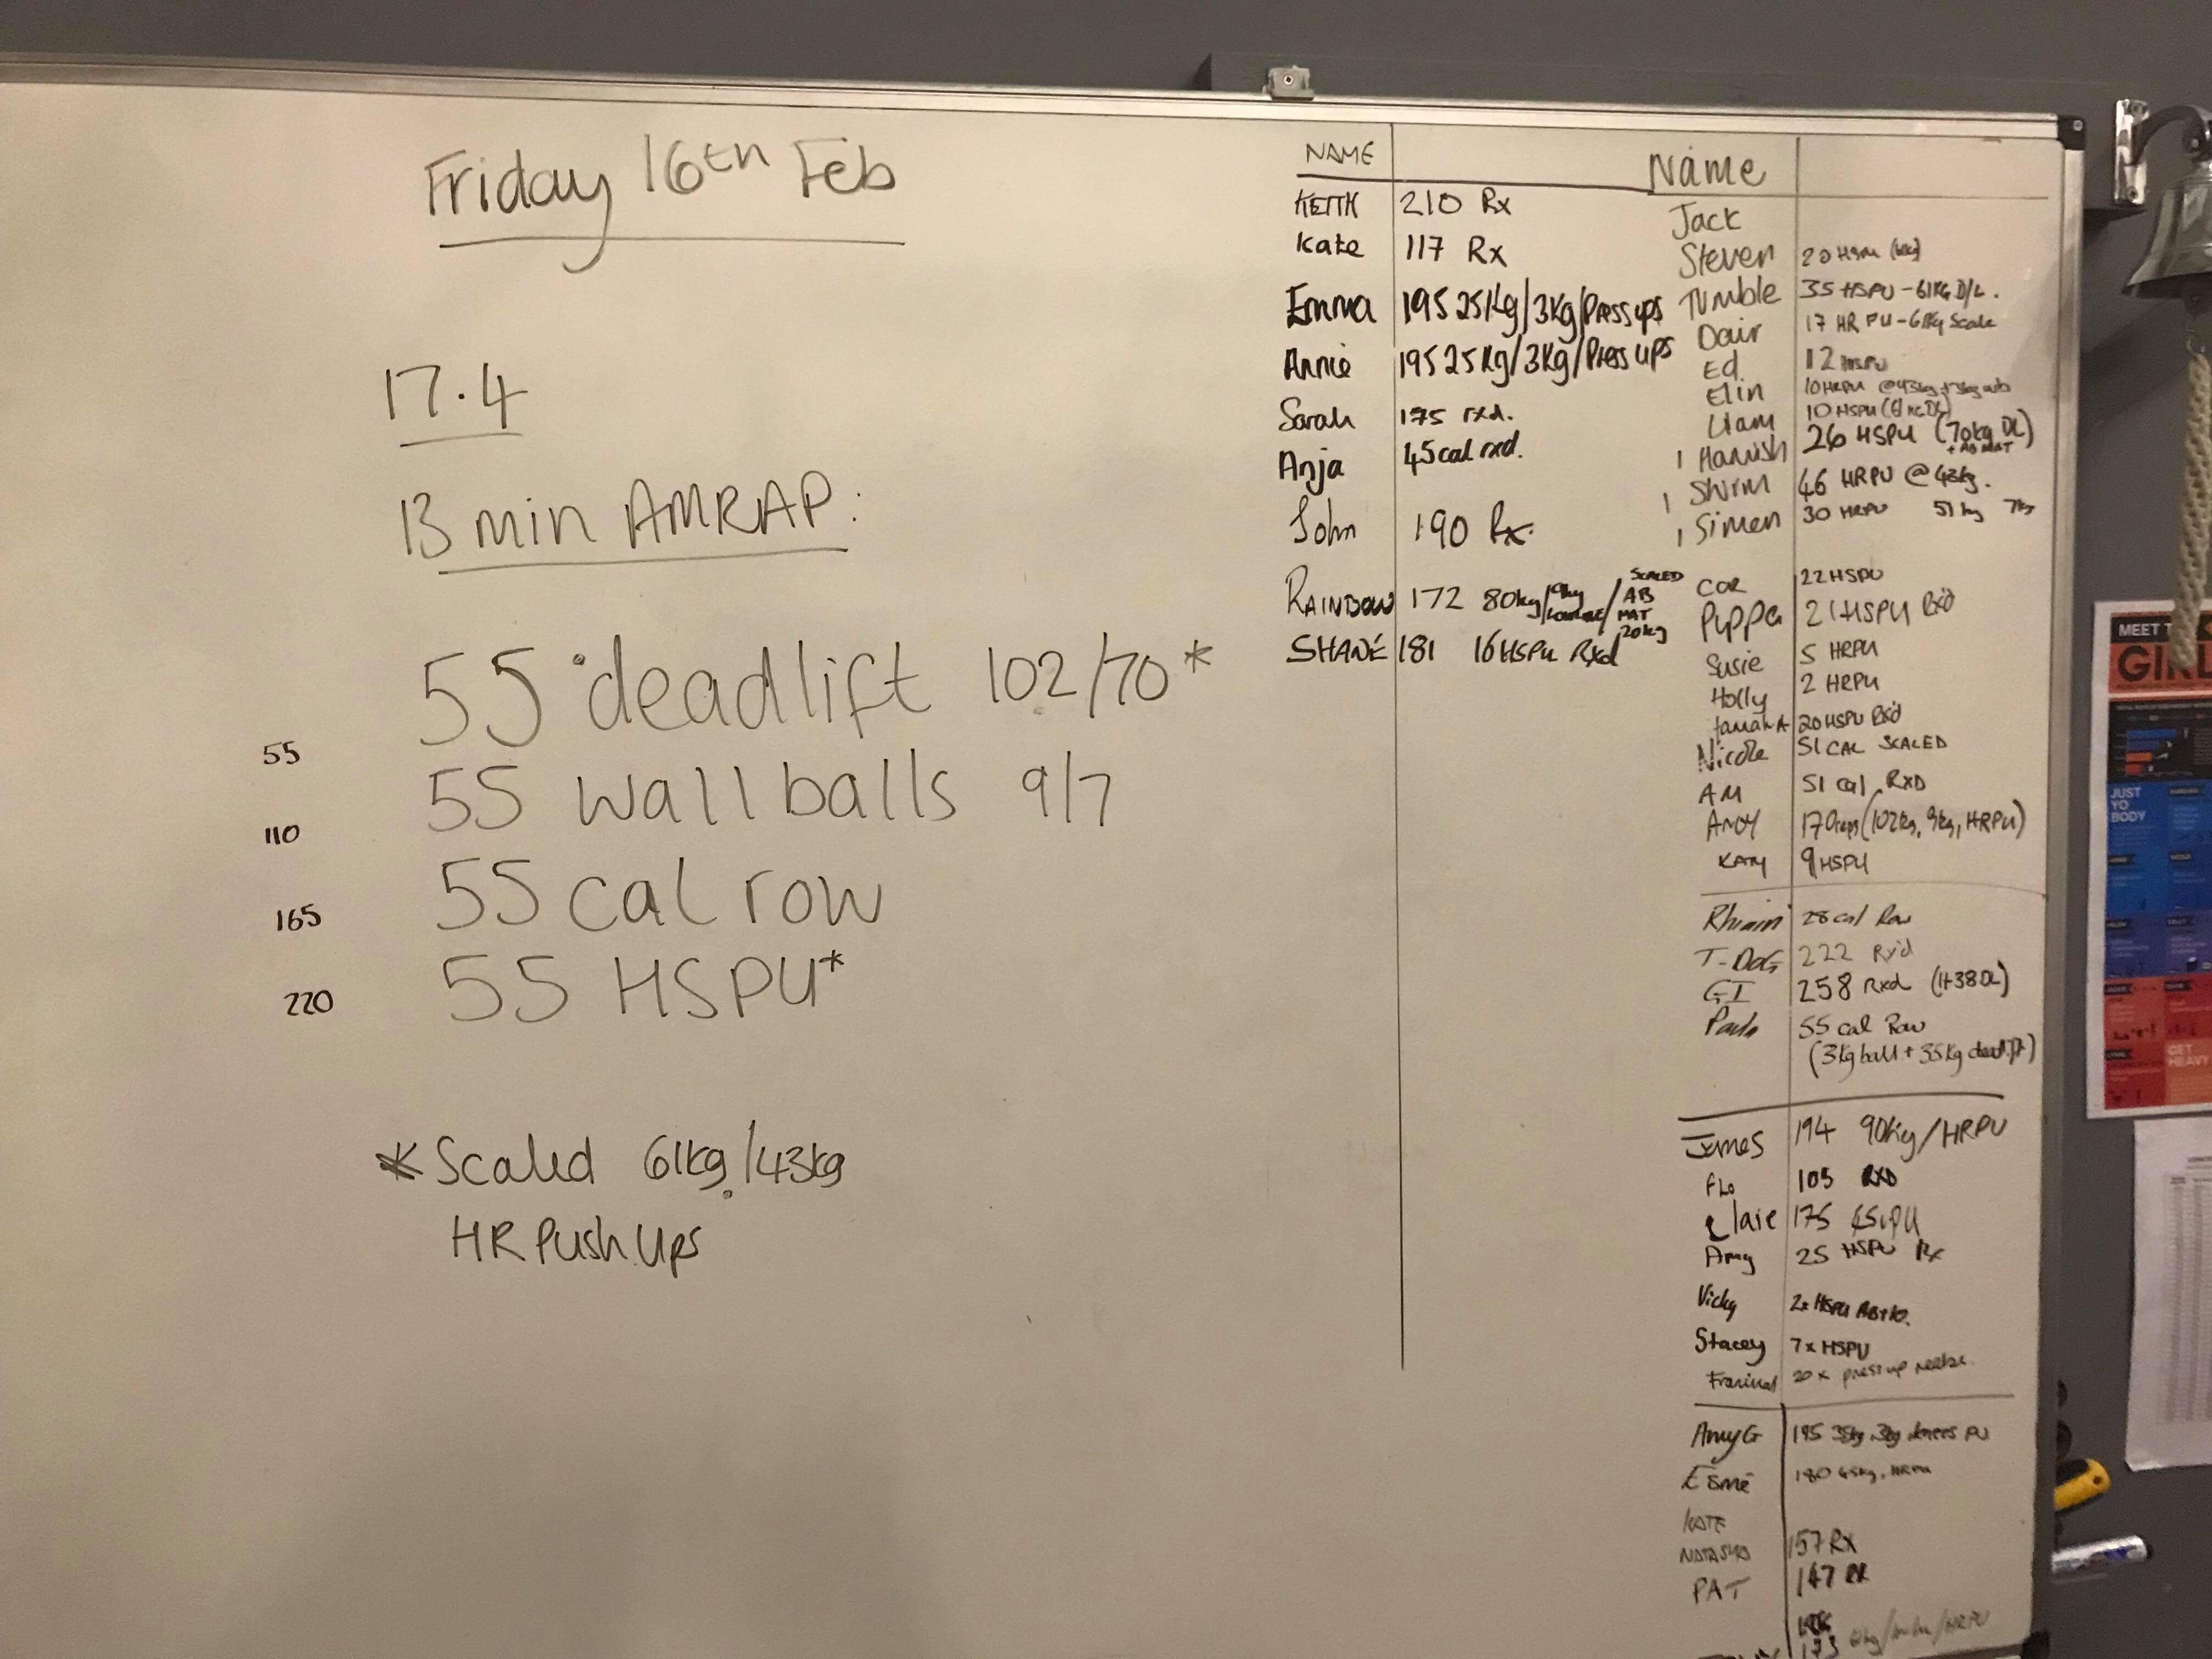 Friday 16th Feb
17.4
13 min AMRAP:
55 deadlift 102/70*
55
55 wall balls 9/7
110
55 cal row
165
55 HSPU*
220
* Scaled 61kg/43kg
HR Push Ups
NAME
KEITH 210 Rx
Kate 117 Rx
Emma 195 25Kg/3Kg/Press ups
Annie 195 25Kg/3Kg/Press ups
Sarah 175 rxd.
Anja 45cal rxd.
John 190 Rx.
RAINBOW 172 80kg/9kg/SCALED AB MAT 20kg
SHANE 181 16HSPU Rxd
Name
Jack
Steven 20
Tumble 35 HSPU - 61KG D/L.
Dair 17 HR PU - 61Kg Scale
Ed 12 HSPU
Elin 10HRPU @43kg
Liam 10 HSPU (61KG DL)
Hamish 26 HSPU (70kg DL)
+ AB MAT
46 HRPU @ 43kg.
Simen 30 HRPU 51kg 7kg
22 HSPU
Pippa 21 HSPU Rxd
Susie 5 HRPU
Holly 2 HRPU
20 HSPU Rxd
Nicole 51 CAL SCALED
AM 51 Cal RXD
ANDY 170reps (102kg, 9kg, HRPU)
KATY 9 HSPU
28 cal Row
T-DOG 222 Rx'd
GI 258 Rxd (1+38DL)
55 cal Row
(3Kg ball + 35Kg deadlift)
James 194 90Kg/HRPU
FLO 105 RXD
175
Amy 25 HSPU Rx
Vicky 2x HSPU
Stacey 7x HSPU
20x press up
Amy G 195 35kg 3kg knees PU
Esmé 180 45kg, HRPU
KATE
NATASHA 157 Rx
PAT 147 RX
173 61kg/ /HRPU